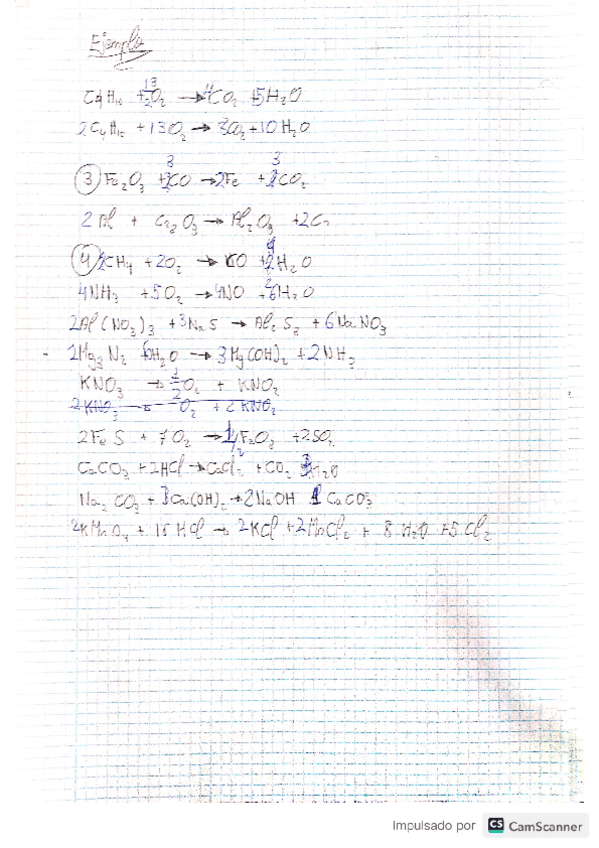 Ejemplo
C4H10 + 13/2 O2 → 4CO2 + 5H2O
2C4H10 + 13O2 → 8CO2 + 10H2O
③ Fe2O3 + 3CO → 2Fe + 3CO2
2Al + Cr2O3 → Al2O3 + 2Cr
④ CH4 + 2O2 → CO + H2O
4NH3 + 5O2 → 4NO + 6H2O
2Al(NO3)3 + 3Na S → Al2 S3 + 6NaNO3
- Mg3 N2 6H2O → 3Mg(OH)2 + 2NH3
KNO3 → 1/2 O2 + KNO2
2KNO3 → O2 + 2KNO2
2Fe S + 7O2 → Fe2O3 + 2SO2
CaCO3 + 2HCl → CaCl2 + CO2 H2O
Na2 CO3 + Ca(OH)2 → 2NaOH 1 CaCO3
2KMnO4 + 16 HCl → 2KCl + 2MnCl2 + 8 H2O + 5Cl2
Impulsado por CS CamScanner